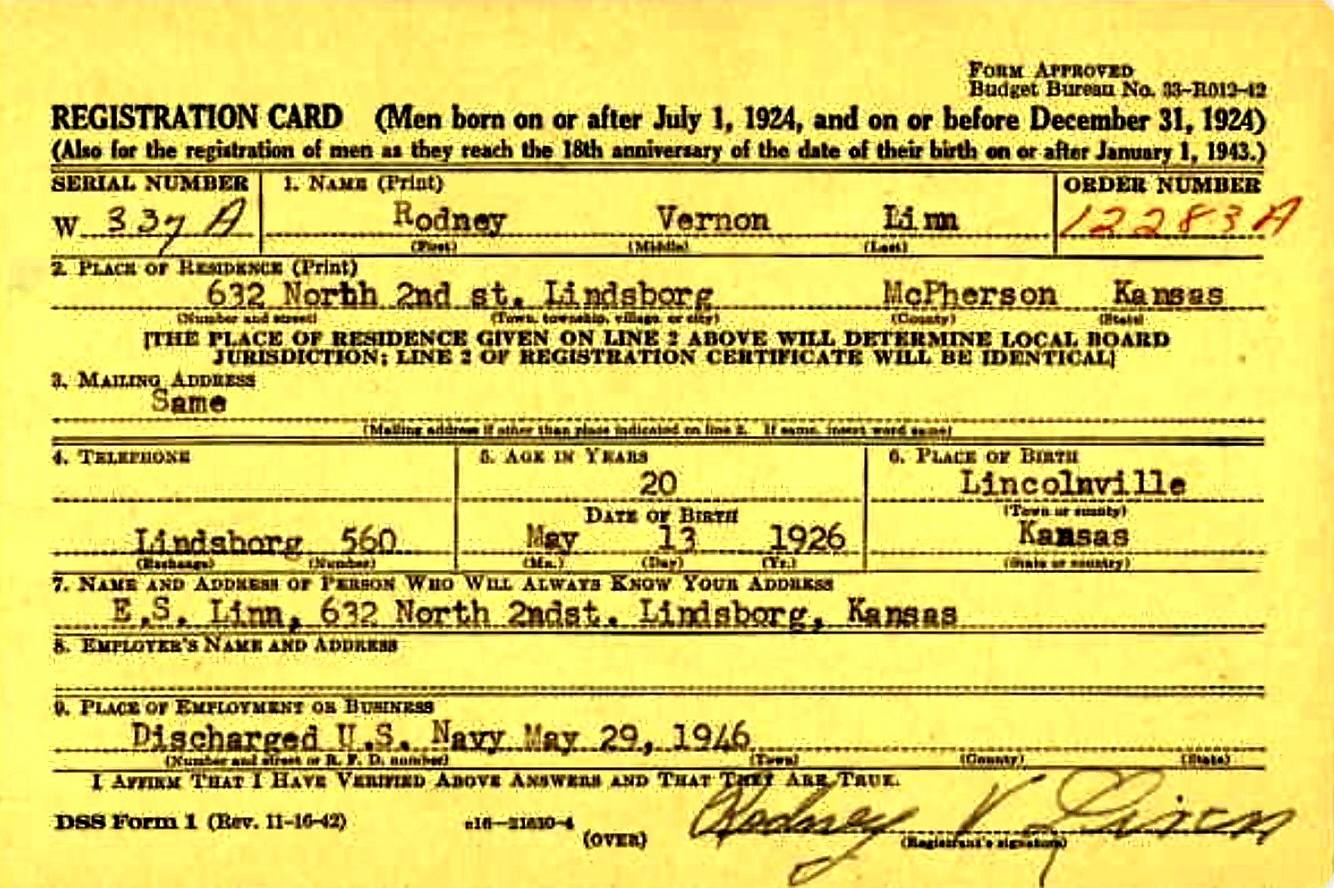 FORM APPROVED
Budget Bureau No. 33-R012-42
REGISTRATION CARD (Men born on or after July 1, 1924, and on or before December 31, 1924)
(Also for the registration of men as they reach the 18th anniversary of the date of their birth on or after January 1, 1943.)
SERIAL NUMBER 1. NAME (Print) ORDER NUMBER
W 337 A Rodney Vernon Linn 12283 A
(First) (Middle) (Last)
2. PLACE OF RESIDENCE (Print)
632 North 2nd st. Lindsborg McPherson Kansas
(Number and street) (Town, township, village, or city) (County) (State)
[THE PLACE OF RESIDENCE GIVEN ON LINE 2 ABOVE WILL DETERMINE LOCAL BOARD
JURISDICTION; LINE 2 OF REGISTRATION CERTIFICATE WILL BE IDENTICAL]
3. MAILING ADDRESS
Same
(Mailing address if other than place indicated on line 2. If same, insert word same)
4. TELEPHONE 5. AGE IN YEARS 6. PLACE OF BIRTH
20 Lincolnville
DATE OF BIRTH (Town or county)
Lindsborg 560 May 13 1926 Kansas
(Exchange) (Number) (Mo.) (Day) (Yr.) (State or country)
7. NAME AND ADDRESS OF PERSON WHO WILL ALWAYS KNOW YOUR ADDRESS
E.S. Linn, 632 North 2ndst. Lindsborg, Kansas
8. EMPLOYER'S NAME AND ADDRESS
9. PLACE OF EMPLOYMENT OR BUSINESS
Discharged U.S. Navy May 29, 1946
(Number and street or R. F. D. number) (Town) (County) (State)
I AFFIRM THAT I HAVE VERIFIED ABOVE ANSWERS AND THAT THEY ARE TRUE.
DSS Form 1 (Rev. 11-16-42) c16-21630-4 Rodney V Linn
(OVER) (Registrant's signature)